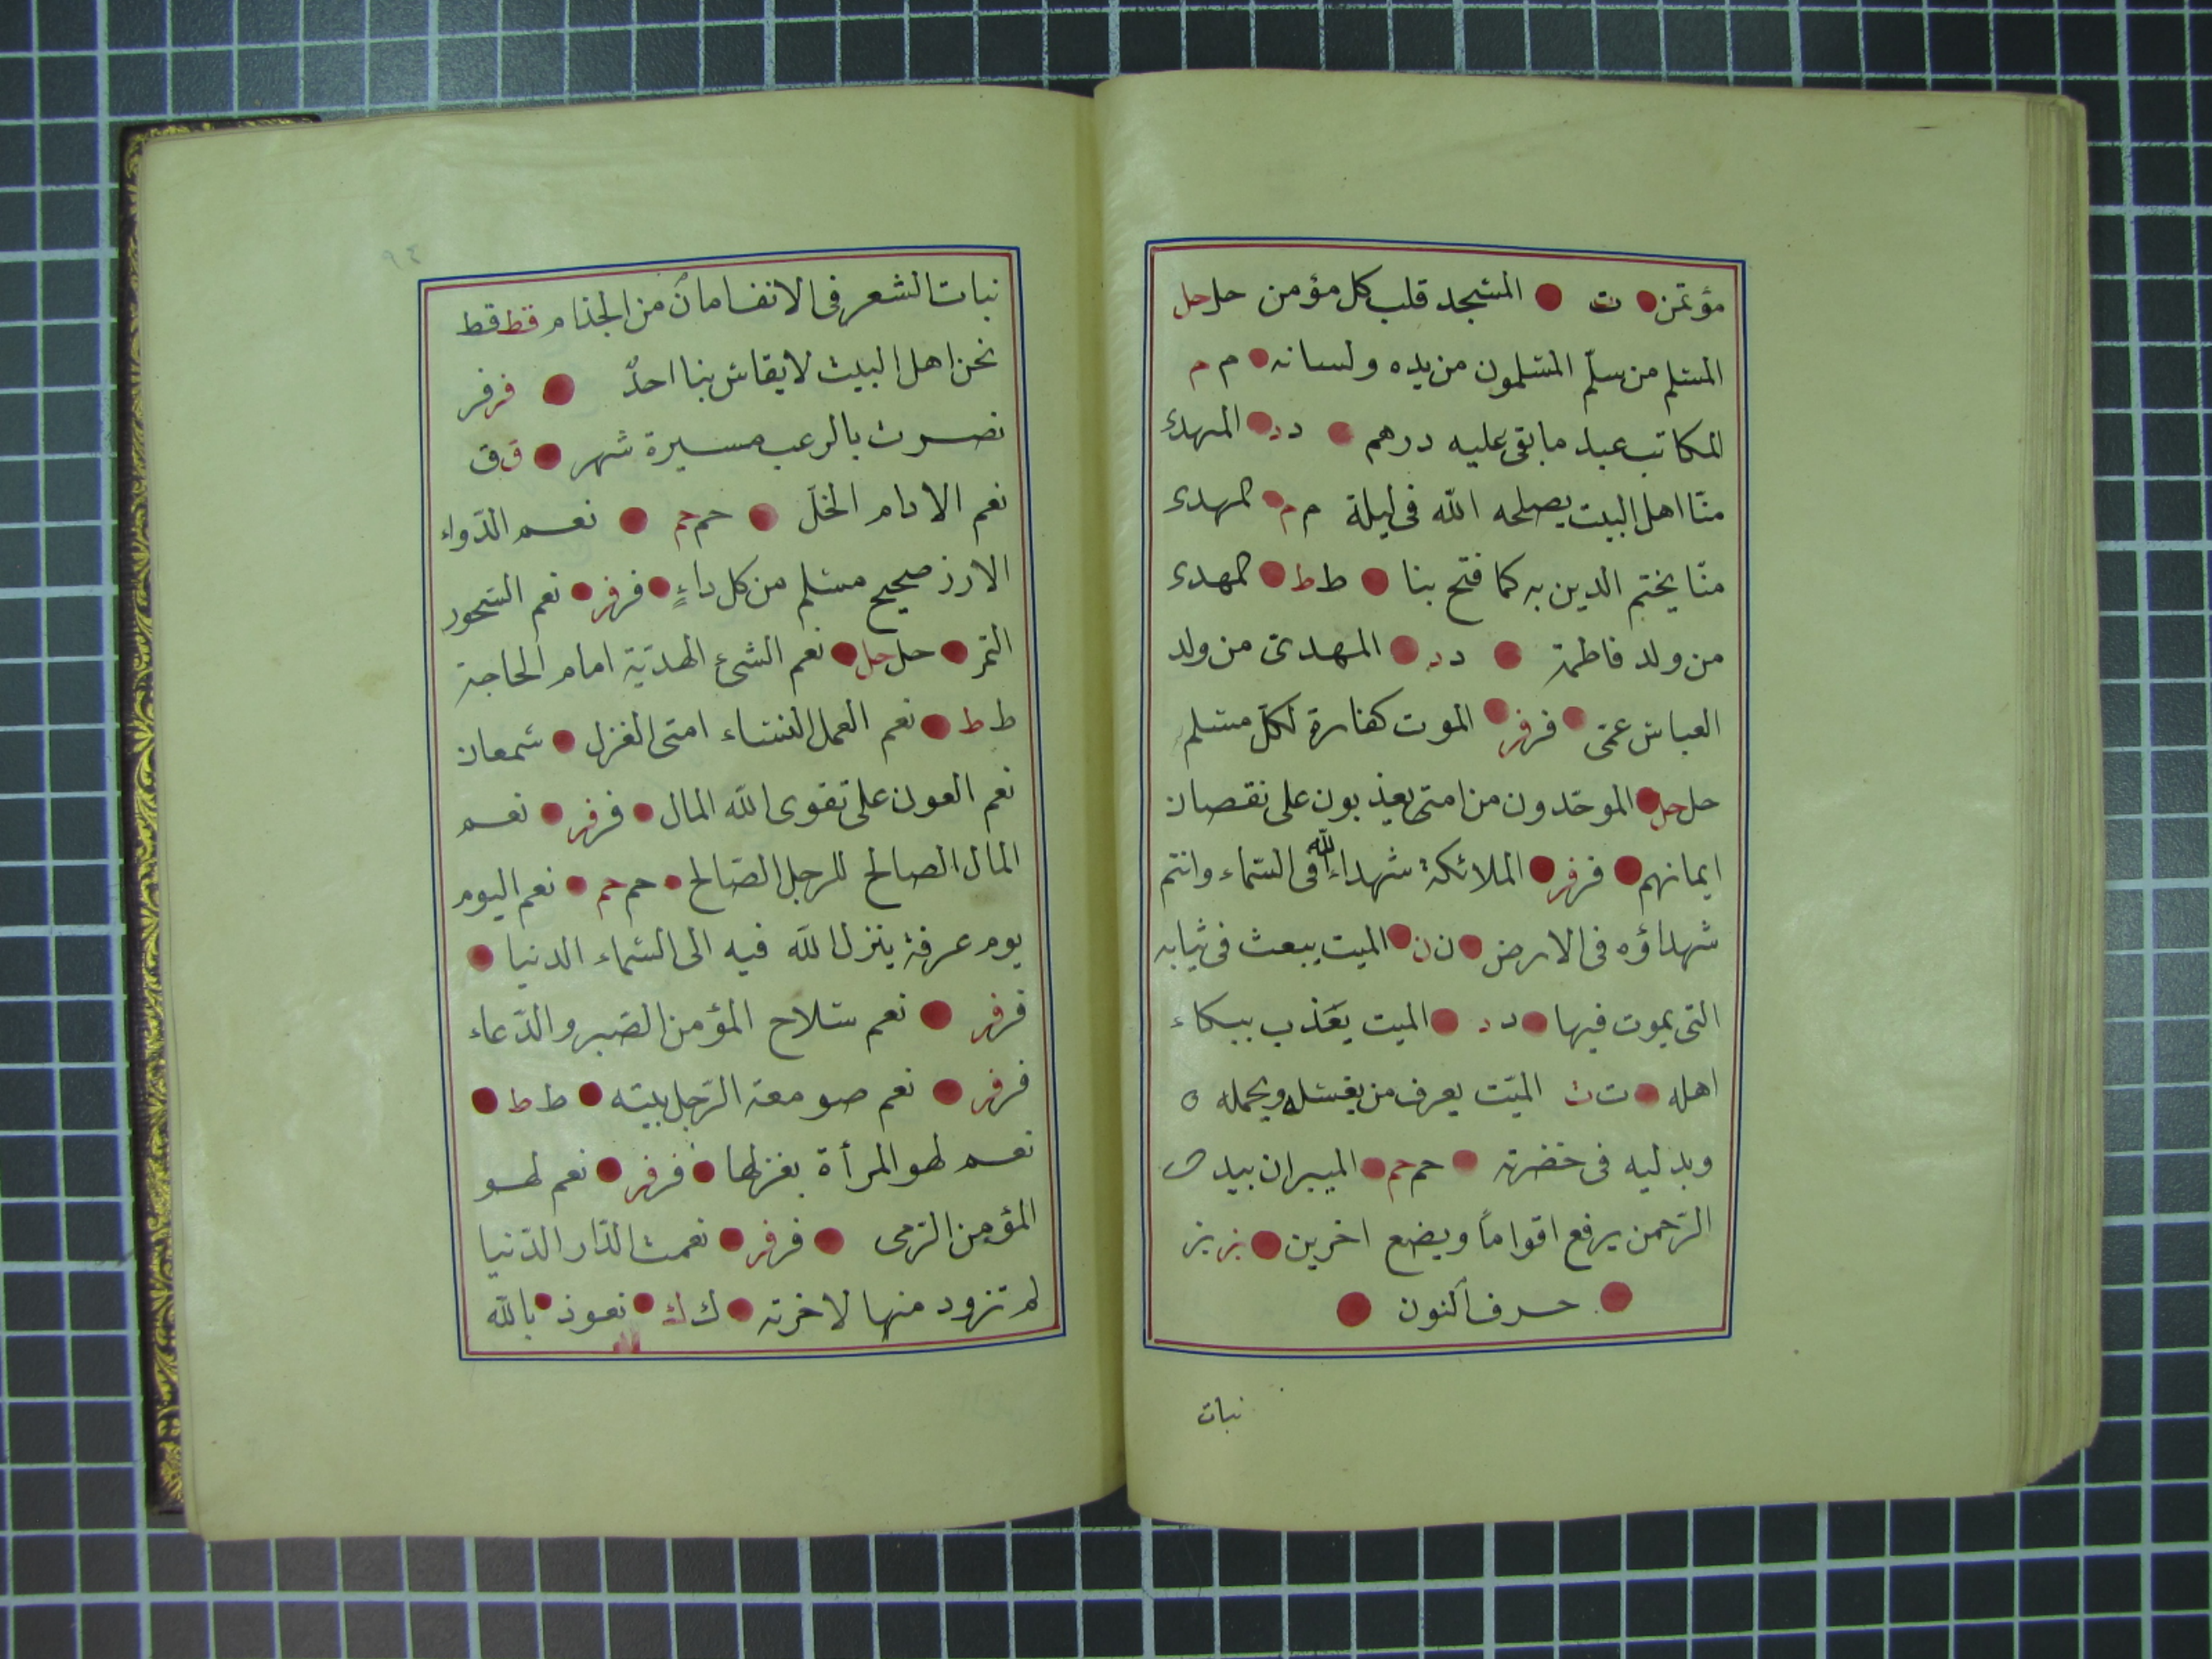 مؤتمن ت المسجد قلب كل مؤمن حل حل
المسلم من سلم المسلمون من يده ولسانه م م
المكاتب عبد ما بقى عليه درهم د د المهدى
منّا اهل البيت يصلحه الله فى ليلة م م المهدى
منّا يختم الدين به كما فتح بنا ط ط المهدى
من ولد فاطمة د د المهدى من ولد
العباس عمّى فر فر الموت كفارة لكل مسلم
حل حل الموحّدون من امتى يعذبون على نقصان
ايمانهم فر فر الملائكة شهداء الله فى السماء وانتم
شهداؤه فى الارض ن ن الميت يبعث فى ثيابه
التى يموت فيها د د الميت يعذب ببكاء
اهله ت ت الميّت يعرف من يغسله ويحمله
ويدليه فى حم حم بيد
الرّحمن يرفع اقواماً ويضع اخرين بز بز
حرف النون
نبات
٩٤
نبات الشعر فى الانف امان من الجذام قط قط
نحن اهل البيت لا يقاس بنا احدٌ فر فر
نصرت بالرعب مسيرة شهر ق ق
نعم الادام الخلّ حم حم نعم الدّواء
الارز صحيح مسلم من كل داءٍ فر فر نعم السّحور
التمر حل حل نعم الشئ الهديّة امام الحاجة
ط ط نعم العمل للنساء امتى الغزل سمعان
نعم العون على تقوى الله المال فر فر نعم
المال الصالح للرجل الصّالح حم حم نعم اليوم
يوم عرفة ينزل الله فيه الى السّماء الدنيا
فر فر نعم سلاح المؤمن الصّبر والدّعاء
فر فر نعم صومعة الرّجل بيته ط ط
نعم لهو المرأة بغزلها فر فر نعم لهو
المؤمن الرّمى فر فر نعمت الدّار الدّنيا
لم تزود منها لاخرته ك ك نعوذ بالله